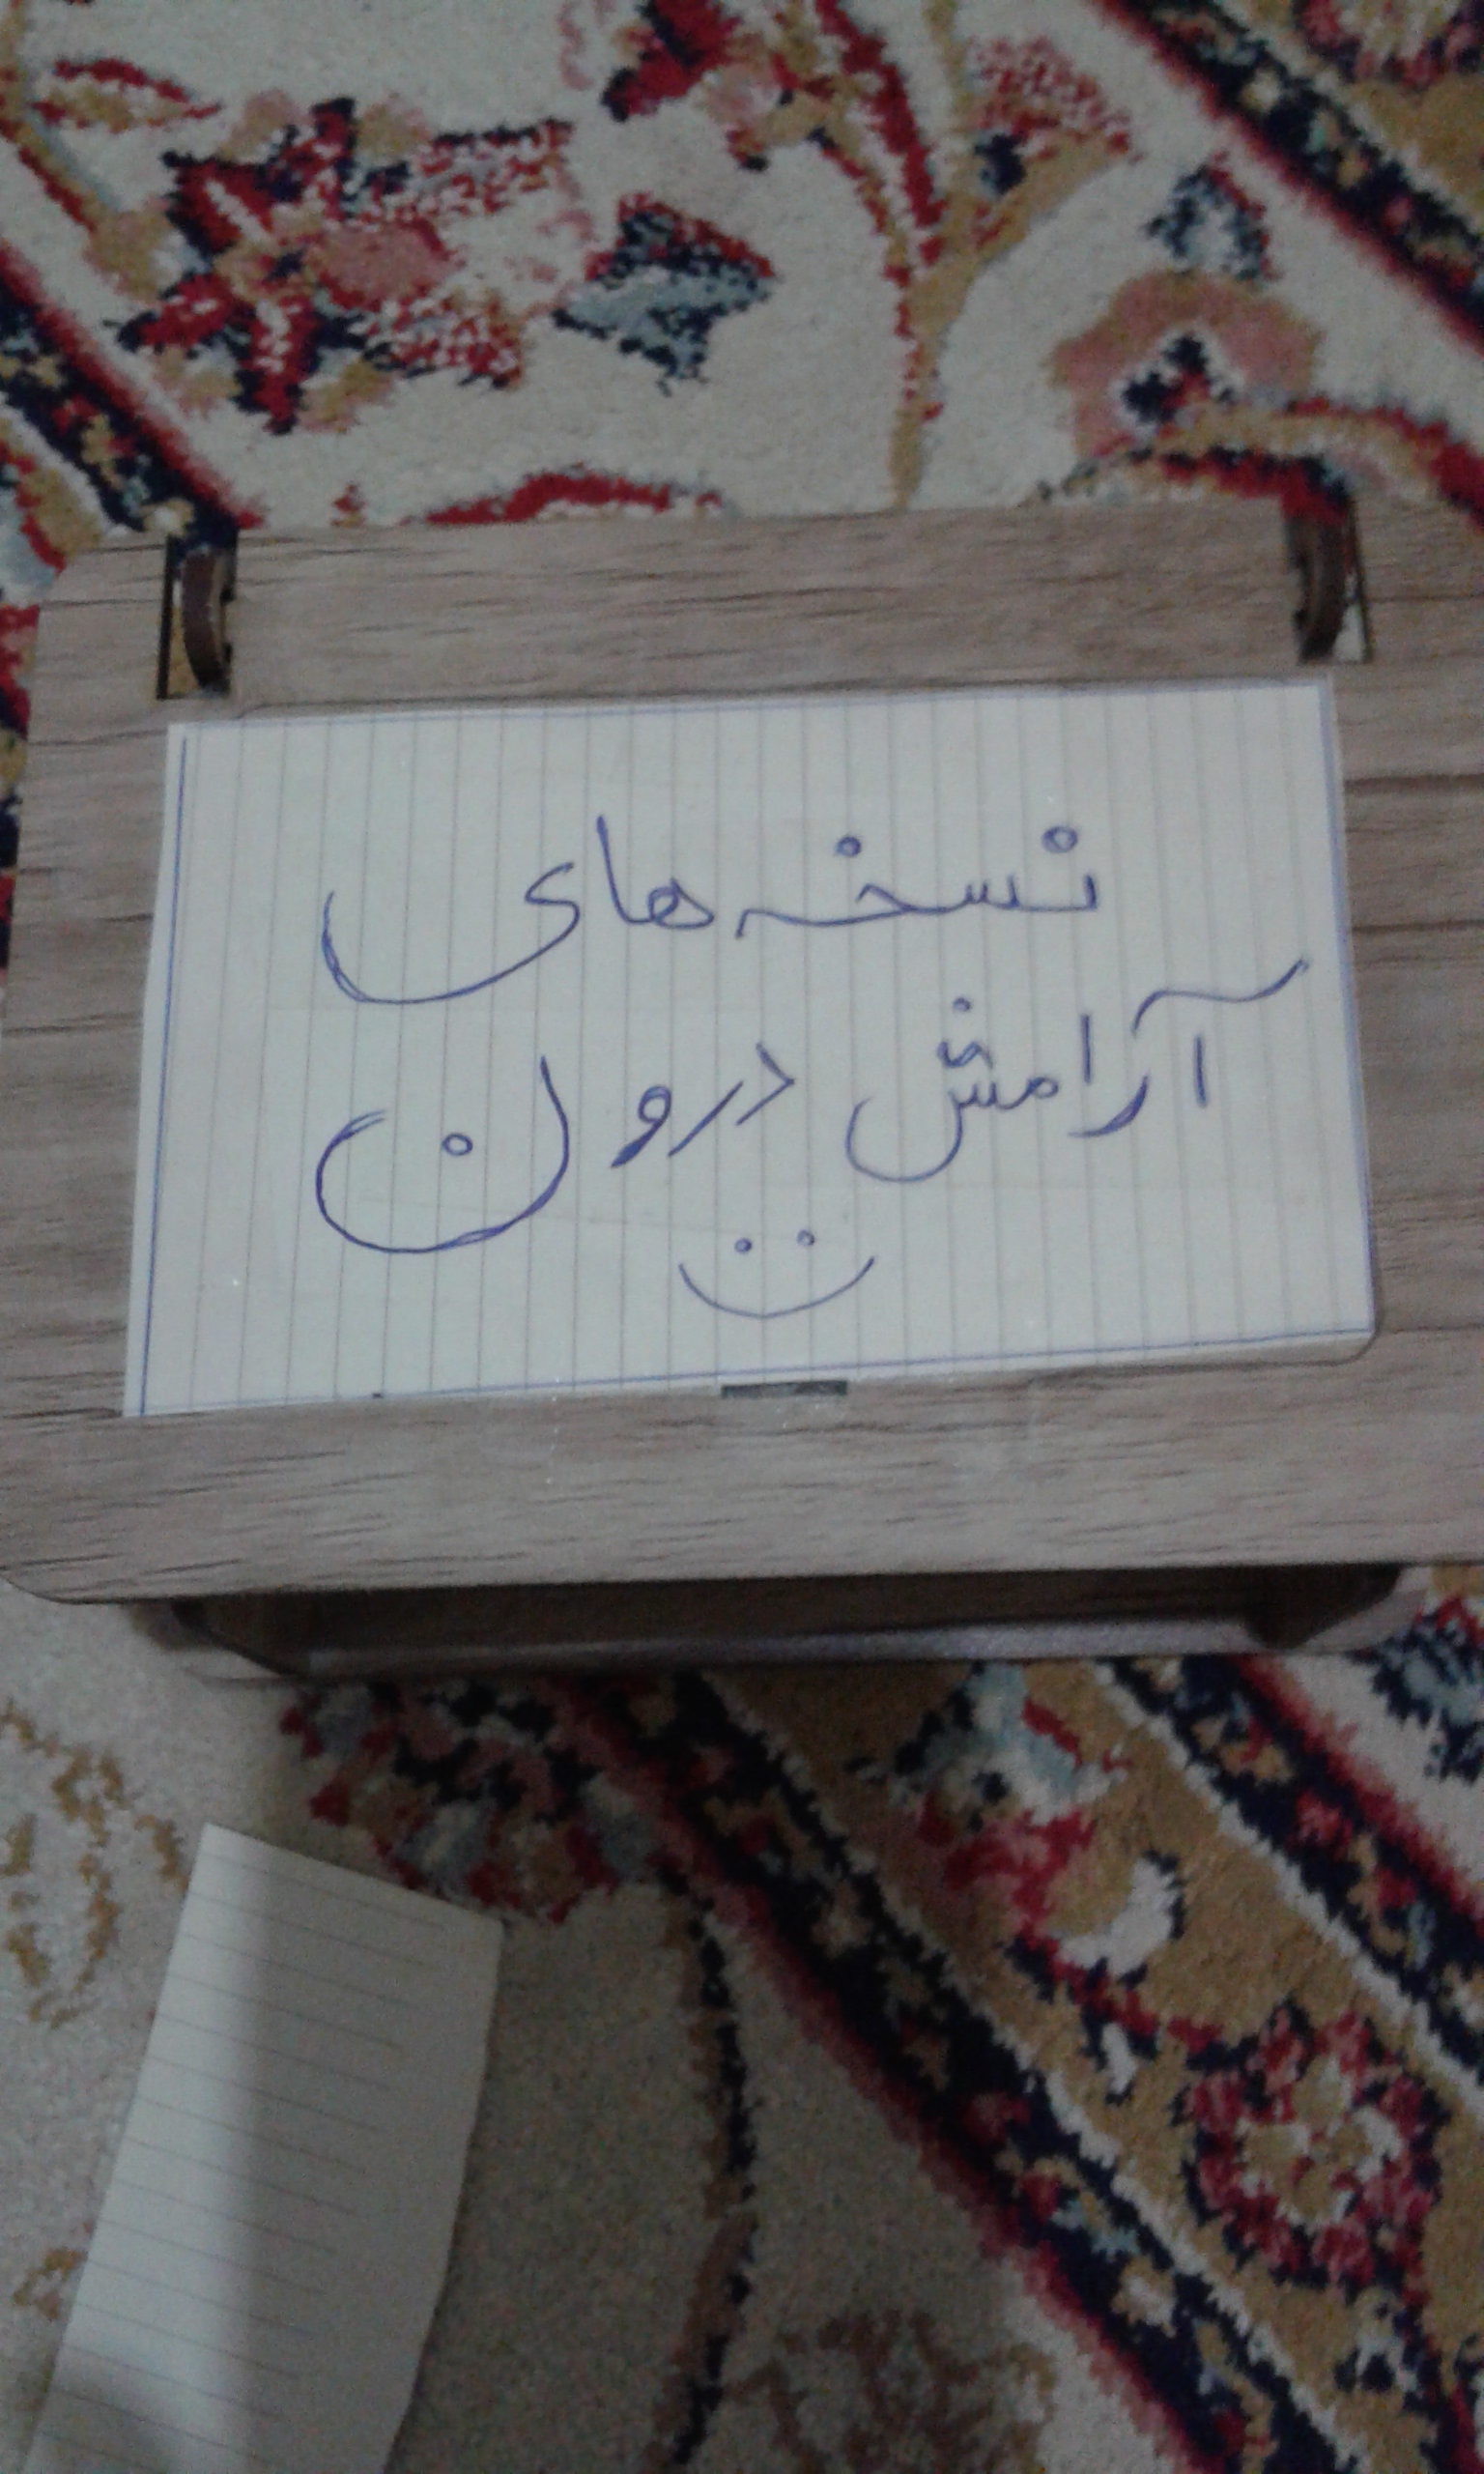 نسخه های
آرامش درون